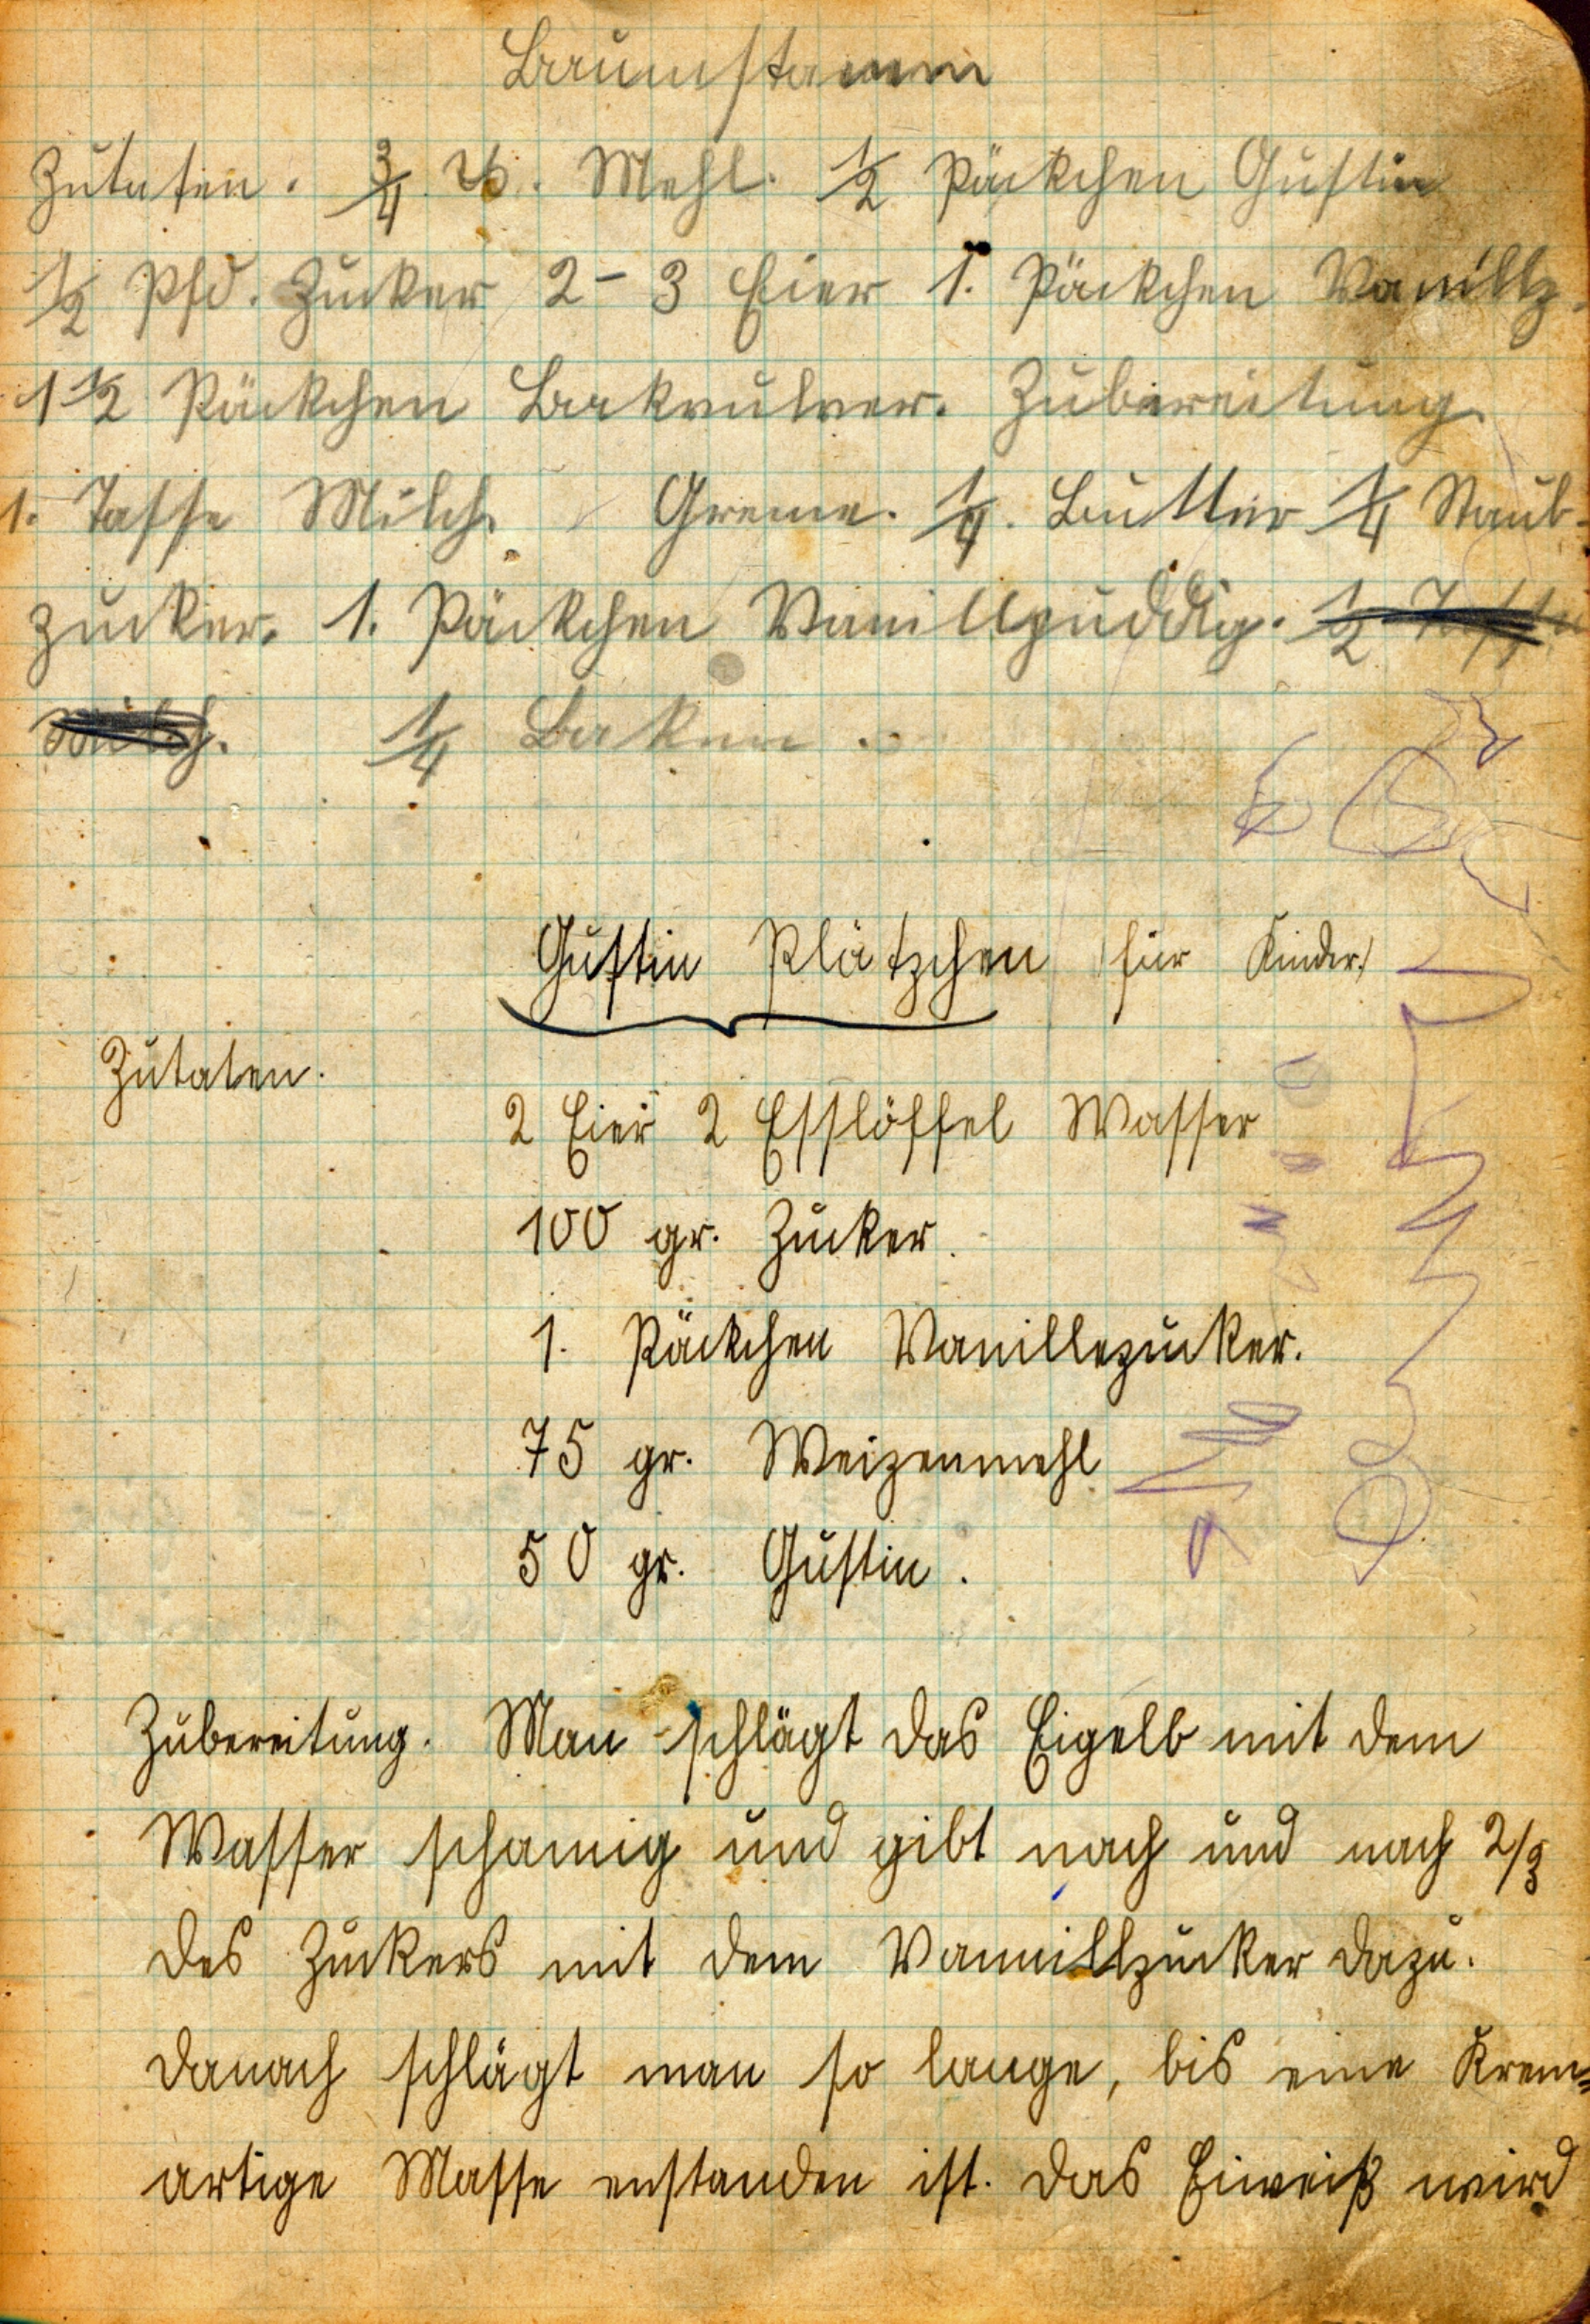 Baumstamm
Zutaten. 3/4 ℔. Mehl. 1/2 Päckchen Gustin
1/2 Pfd. Zucker 2-3 Eier 1. Päckchen Vanillz.
1 1/2 Päckchen Backpulver. Zubereitung.
1. Tasse Milch. Greme. 1/4. Butter 1/4 Staub-
zucker. 1. Päckchen Vanillpuddig. 1/2 Tasse
Milch. 1/4
Gustin Plätzchen (für Kinder)
Zutaten.
2 Eier 2 Esslöffel Wasser
100 gr. Zucker.
1. Päckchen Vanillezucker.
75 gr. Weizenmehl
50 gr. Gustin.
Zubereitung. Man schlägt das Eigelb mit dem
Wasser schamig und gibt nach und nach 2/3
des Zuckers mit dem Vannillzucker dazu.
danach schlägt man so lange, bis eine Krem=
artige Masse enstanden ist. Das Eiweiß wird